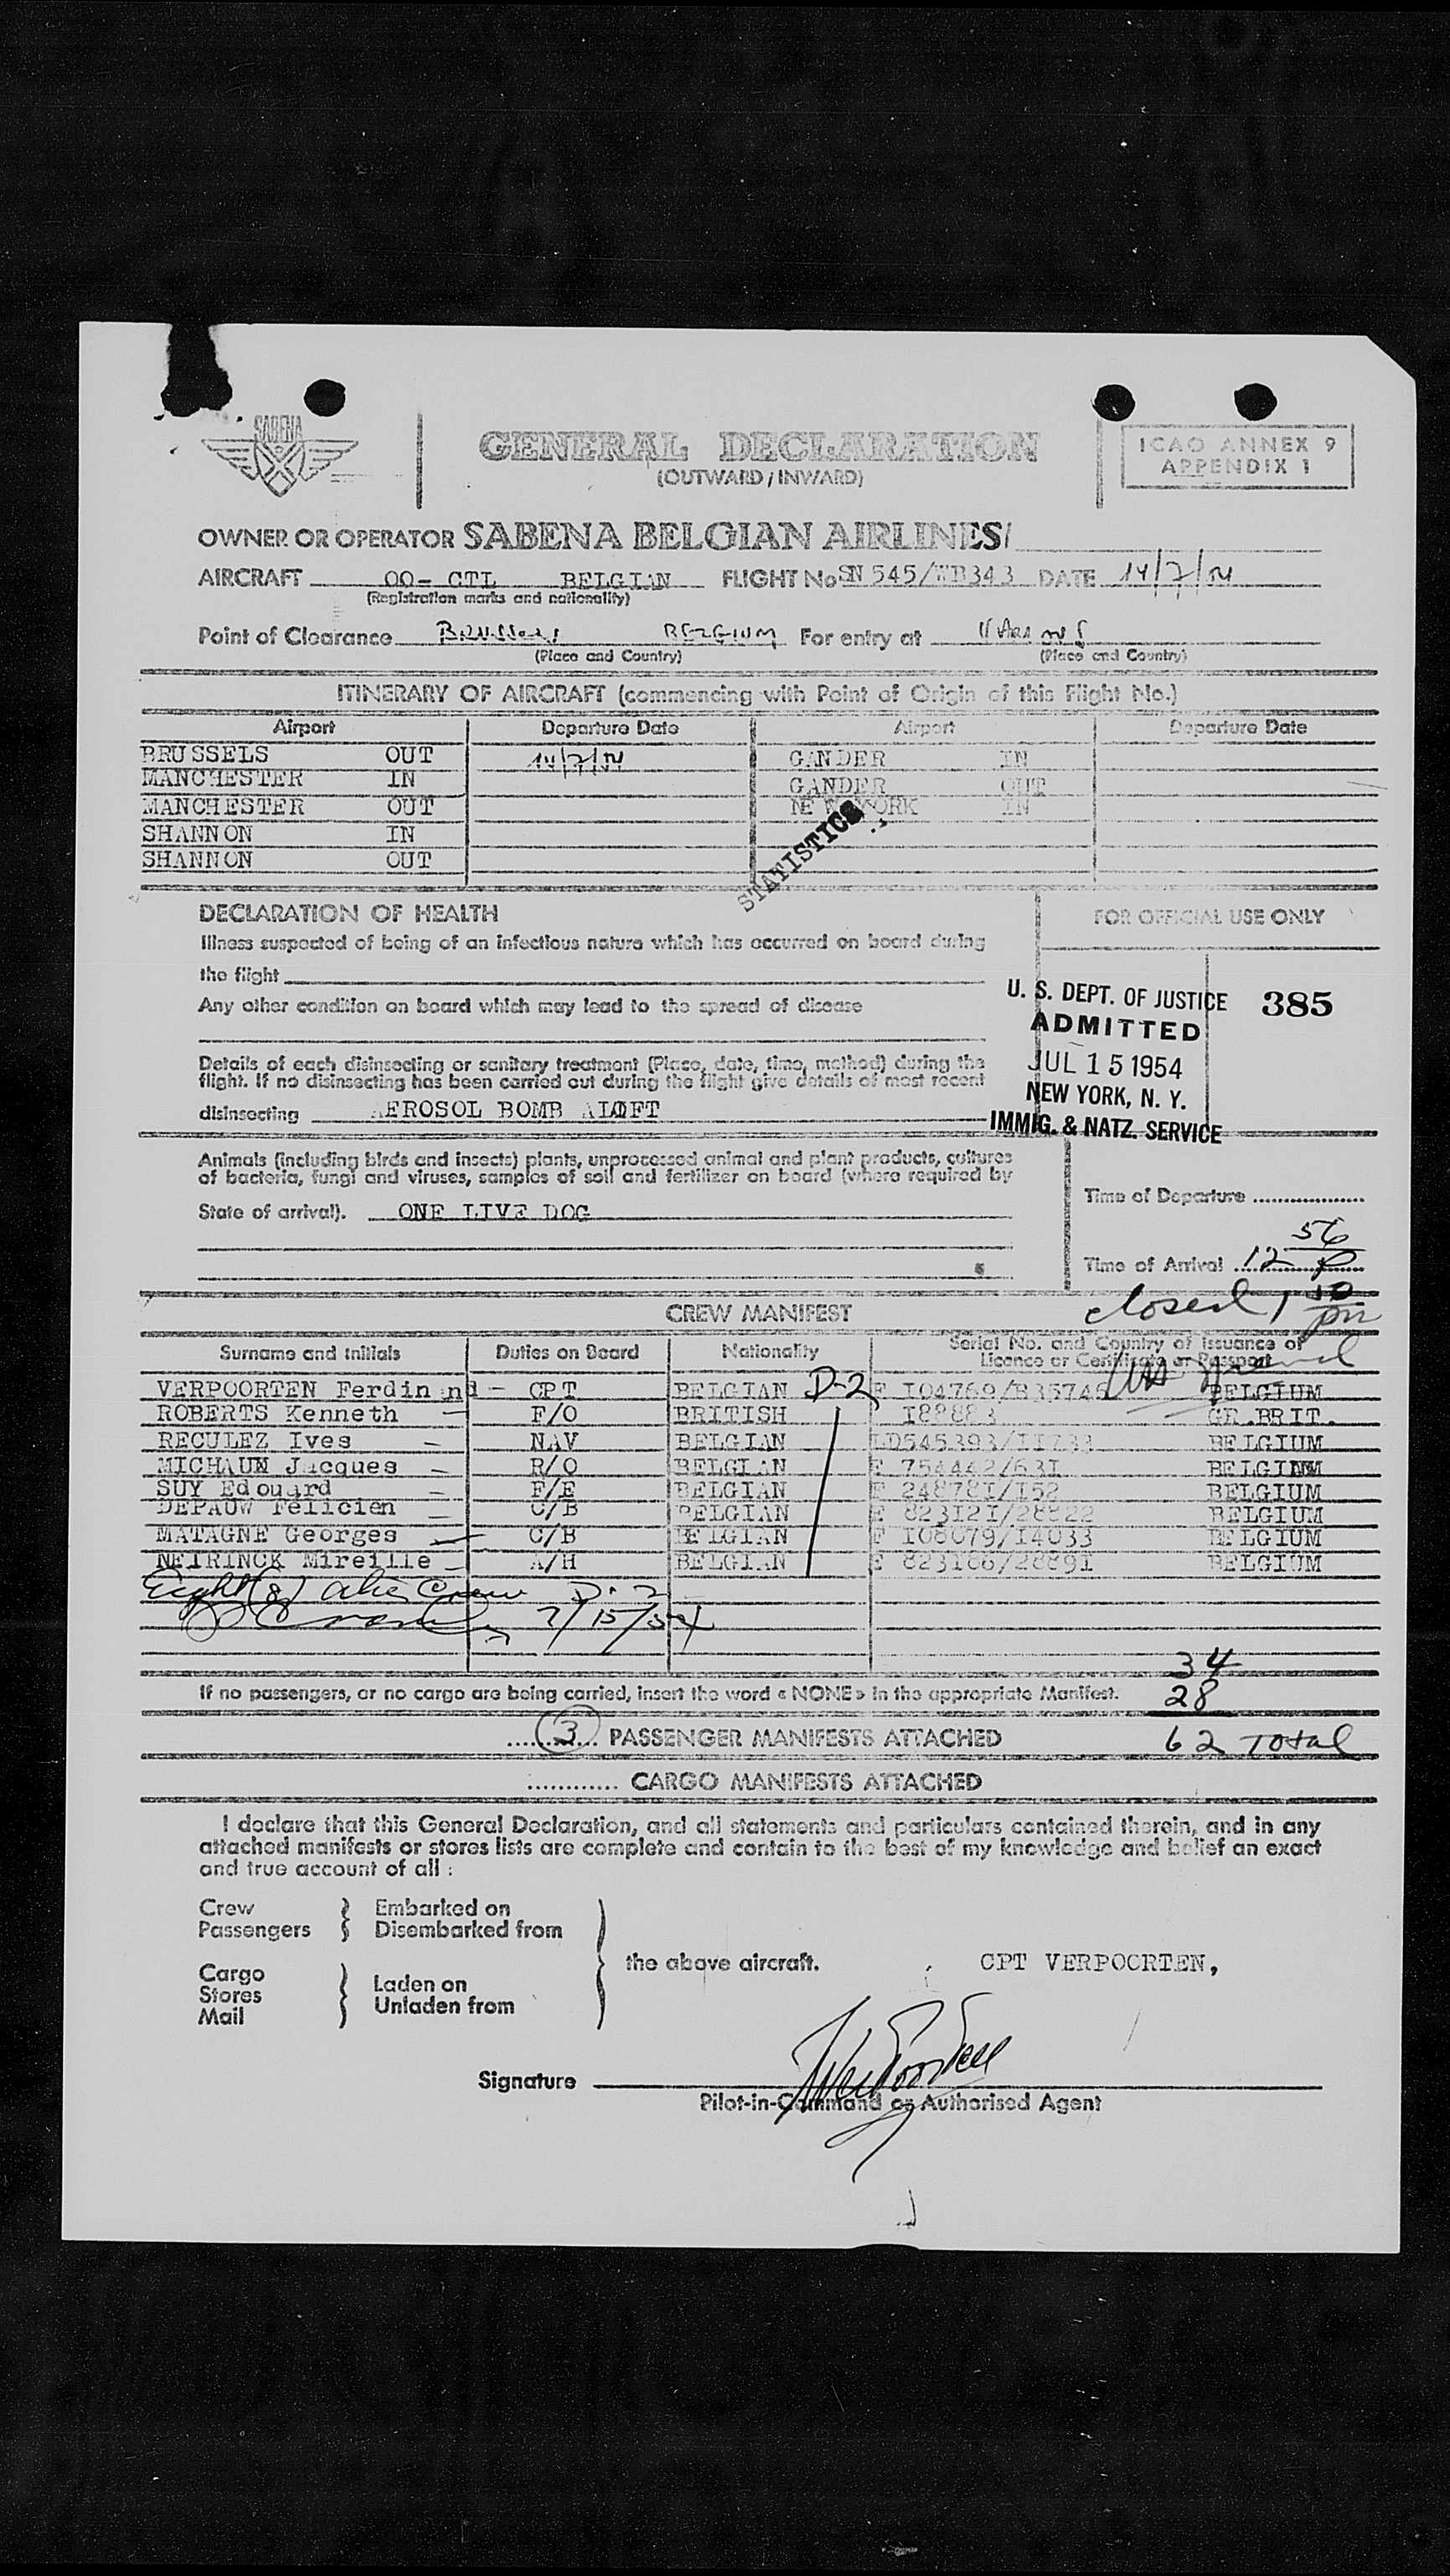 SABENA
GENERAL DECLARATION
(OUTWARD / INWARD)
ICAO ANNEX 9
APPENDIX 1
OWNER OR OPERATOR SABENA BELGIAN AIRLINES/
AIRCRAFT OO- CTL BELGIAN FLIGHT No SN 545/WB343 DATE 14/7/54
(Registration marks and nationality)
Point of Clearance Brussels BELGIUM For entry at
(Place and Country) (Place and Country)
ITINERARY OF AIRCRAFT (commencing with Point of Origin of this Flight No.)
Airport Departure Date Airport Departure Date
BRUSSELS OUT 14/7/54 GANDER IN
MANCHESTER IN GANDER OUT
MANCHESTER OUT NEW YORK IN
SHANNON IN
SHANNON OUT
STATISTICS
DECLARATION OF HEALTH
FOR OFFICIAL USE ONLY
Illness suspected of being of an infectious nature which has occurred on board during
the flight
Any other condition on board which may lead to the spread of disease
U. S. DEPT. OF JUSTICE 385
ADMITTED
JUL 15 1954
NEW YORK, N. Y.
IMMIG. & NATZ. SERVICE
Details of each disinsecting or sanitary treatment (Place, date, time, method) during the
flight. If no disinsecting has been carried out during the flight give details of most recent
disinsecting AEROSOL BOMB ALOFT
Animals (including birds and insects) plants, unprocessed animal and plant products, cultures
of bacteria, fungi and viruses, samples of soil and fertilizer on board (where required by
State of arrival). ONE LIVE DOG
Time of Departure
Time of Arrival 12 56 P
closed 1 50 pm
CREW MANIFEST
Surname and Initials Duties on Board Nationality Serial No. and Country of Issuance of
Licence or Certificate or Passport
VERPOORTEN Ferdinand - CPT BELGIAN D-2 F 104769/B35746 BELGIUM
ROBERTS Kenneth - F/O BRITISH 188883 GR.BRIT.
RECULEZ Ives - NAV BELGIAN LD545393/11733 BELGIUM
MICHAUX Jacques - R/O BELGIAN F 754442/631 BELGIUM
SUY Edouard - F/E BELGIAN F 248781/152 BELGIUM
DEPAUW Felicien - C/B BELGIAN F 823121/28822 BELGIUM
MATAGNE Georges - C/B BELGIAN F 108079/14033 BELGIUM
NEIRINCK Mireille - A/H BELGIAN F 823186/28891 BELGIUM
Eight (8) alien Crew D-2
7/15/54
34
If no passengers, or no cargo are being carried, insert the word « NONE » in the appropriate Manifest. 28
(3) PASSENGER MANIFESTS ATTACHED 62 Total
............ CARGO MANIFESTS ATTACHED
I declare that this General Declaration, and all statements and particulars contained therein, and in any
attached manifests or stores lists are complete and contain to the best of my knowledge and belief an exact
and true account of all :
Crew Embarked on
Passengers Disembarked from
the above aircraft. CPT VERPOORTEN,
Cargo Laden on
Stores
Unladen from
Mail
Signature
Pilot-in-Command or Authorised Agent